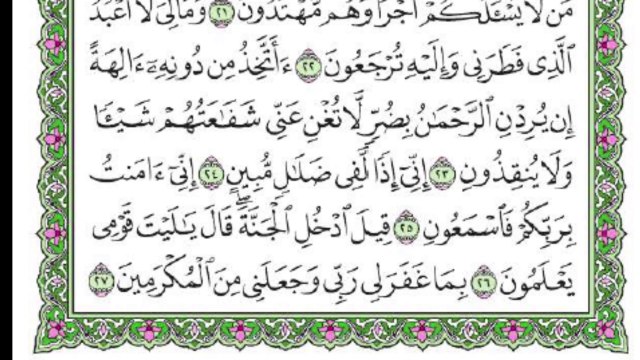 مَن لَّا يَسْـَٔلُكُمْ أَجْرًا وَهُم مُّهْتَدُونَ ٢١ وَمَا لِىَ لَآ أَعْبُدُ
ٱلَّذِى فَطَرَنِى وَإِلَيْهِ تُرْجَعُونَ ٢٢ ءَأَتَّخِذُ مِن دُونِهِۦٓ ءَالِهَةً
إِن يُرِدْنِ ٱلرَّحْمَٰنُ بِضُرٍّ لَّا تُغْنِ عَنِّى شَفَٰعَتُهُمْ شَيْـًٔا
وَلَا يُنقِذُونِ ٢٣ إِنِّىٓ إِذًا لَّفِى ضَلَٰلٍ مُّبِينٍ ٢٤ إِنِّىٓ ءَامَنتُ
بِرَبِّكُمْ فَٱسْمَعُونِ ٢٥ قِيلَ ٱدْخُلِ ٱلْجَنَّةَ ۖ قَالَ يَٰلَيْتَ قَوْمِى
يَعْلَمُونَ ٢٦ بِمَا غَفَرَ لِى رَبِّى وَجَعَلَنِى مِنَ ٱلْمُكْرَمِينَ ٢٧